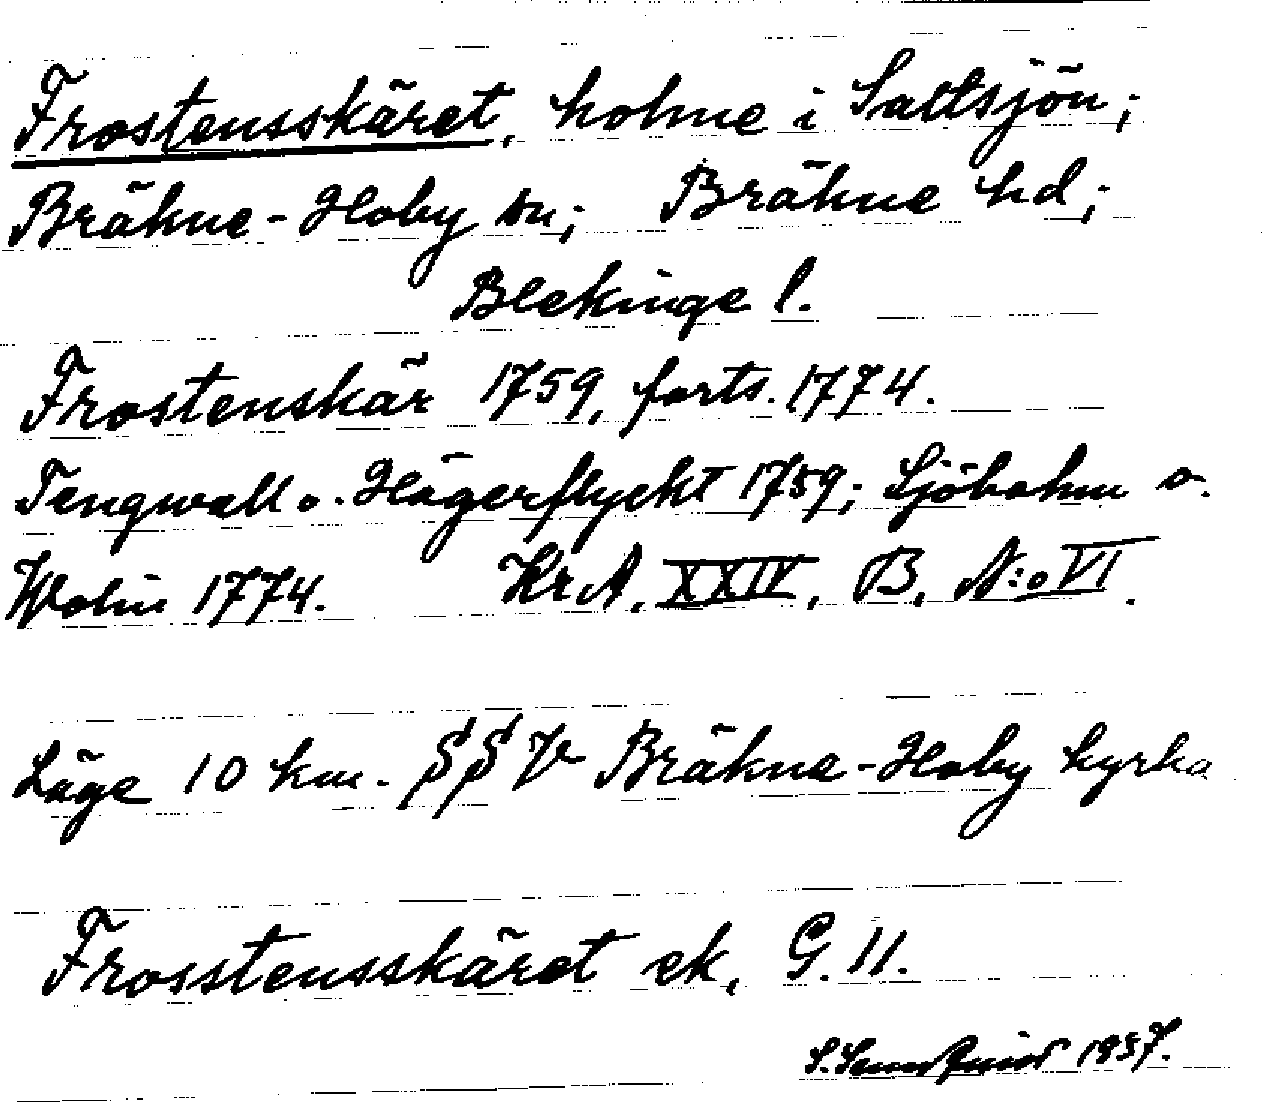 Frostensskäret, holme i Saltsjön;
Bräkne-Hoby sn; Bräkne hd;
Blekinge l.
Frostenskär 1759, forts. 1774.
Tengwall o. Hägerflyckt 1759; Sjöbohm o.
Wolin 1774. KrA, XXIV, B, N:o VI.
Läge 10 km. SSV Bräkne-Hoby kyrka
Frosstensskäret ek, G. 11.
1937.